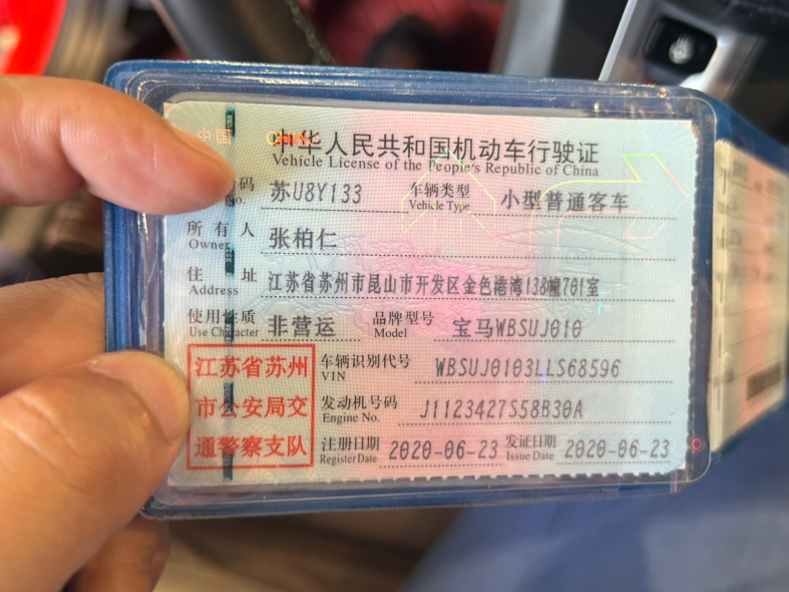 中国 CHINO
中华人民共和国机动车行驶证
Vehicle License of the People's Republic of China
码 苏U8Y133 车辆类型 小型普通客车
No. Vehicle Type
所有人 张柏仁
Owner
住址 江苏省苏州市昆山市开发区金色港湾138幢701室
Address
使用性质 非营运 品牌型号 宝马WBSUJ010
Use Character Model
江苏省苏州 车辆识别代号 WBSUJ0103LLS68596
VIN
市公安局交 发动机号码 J1123427S58B30A
Engine No.
通警察支队 注册日期 2020-06-23 发证日期 2020-06-23
Register Date Issue Date